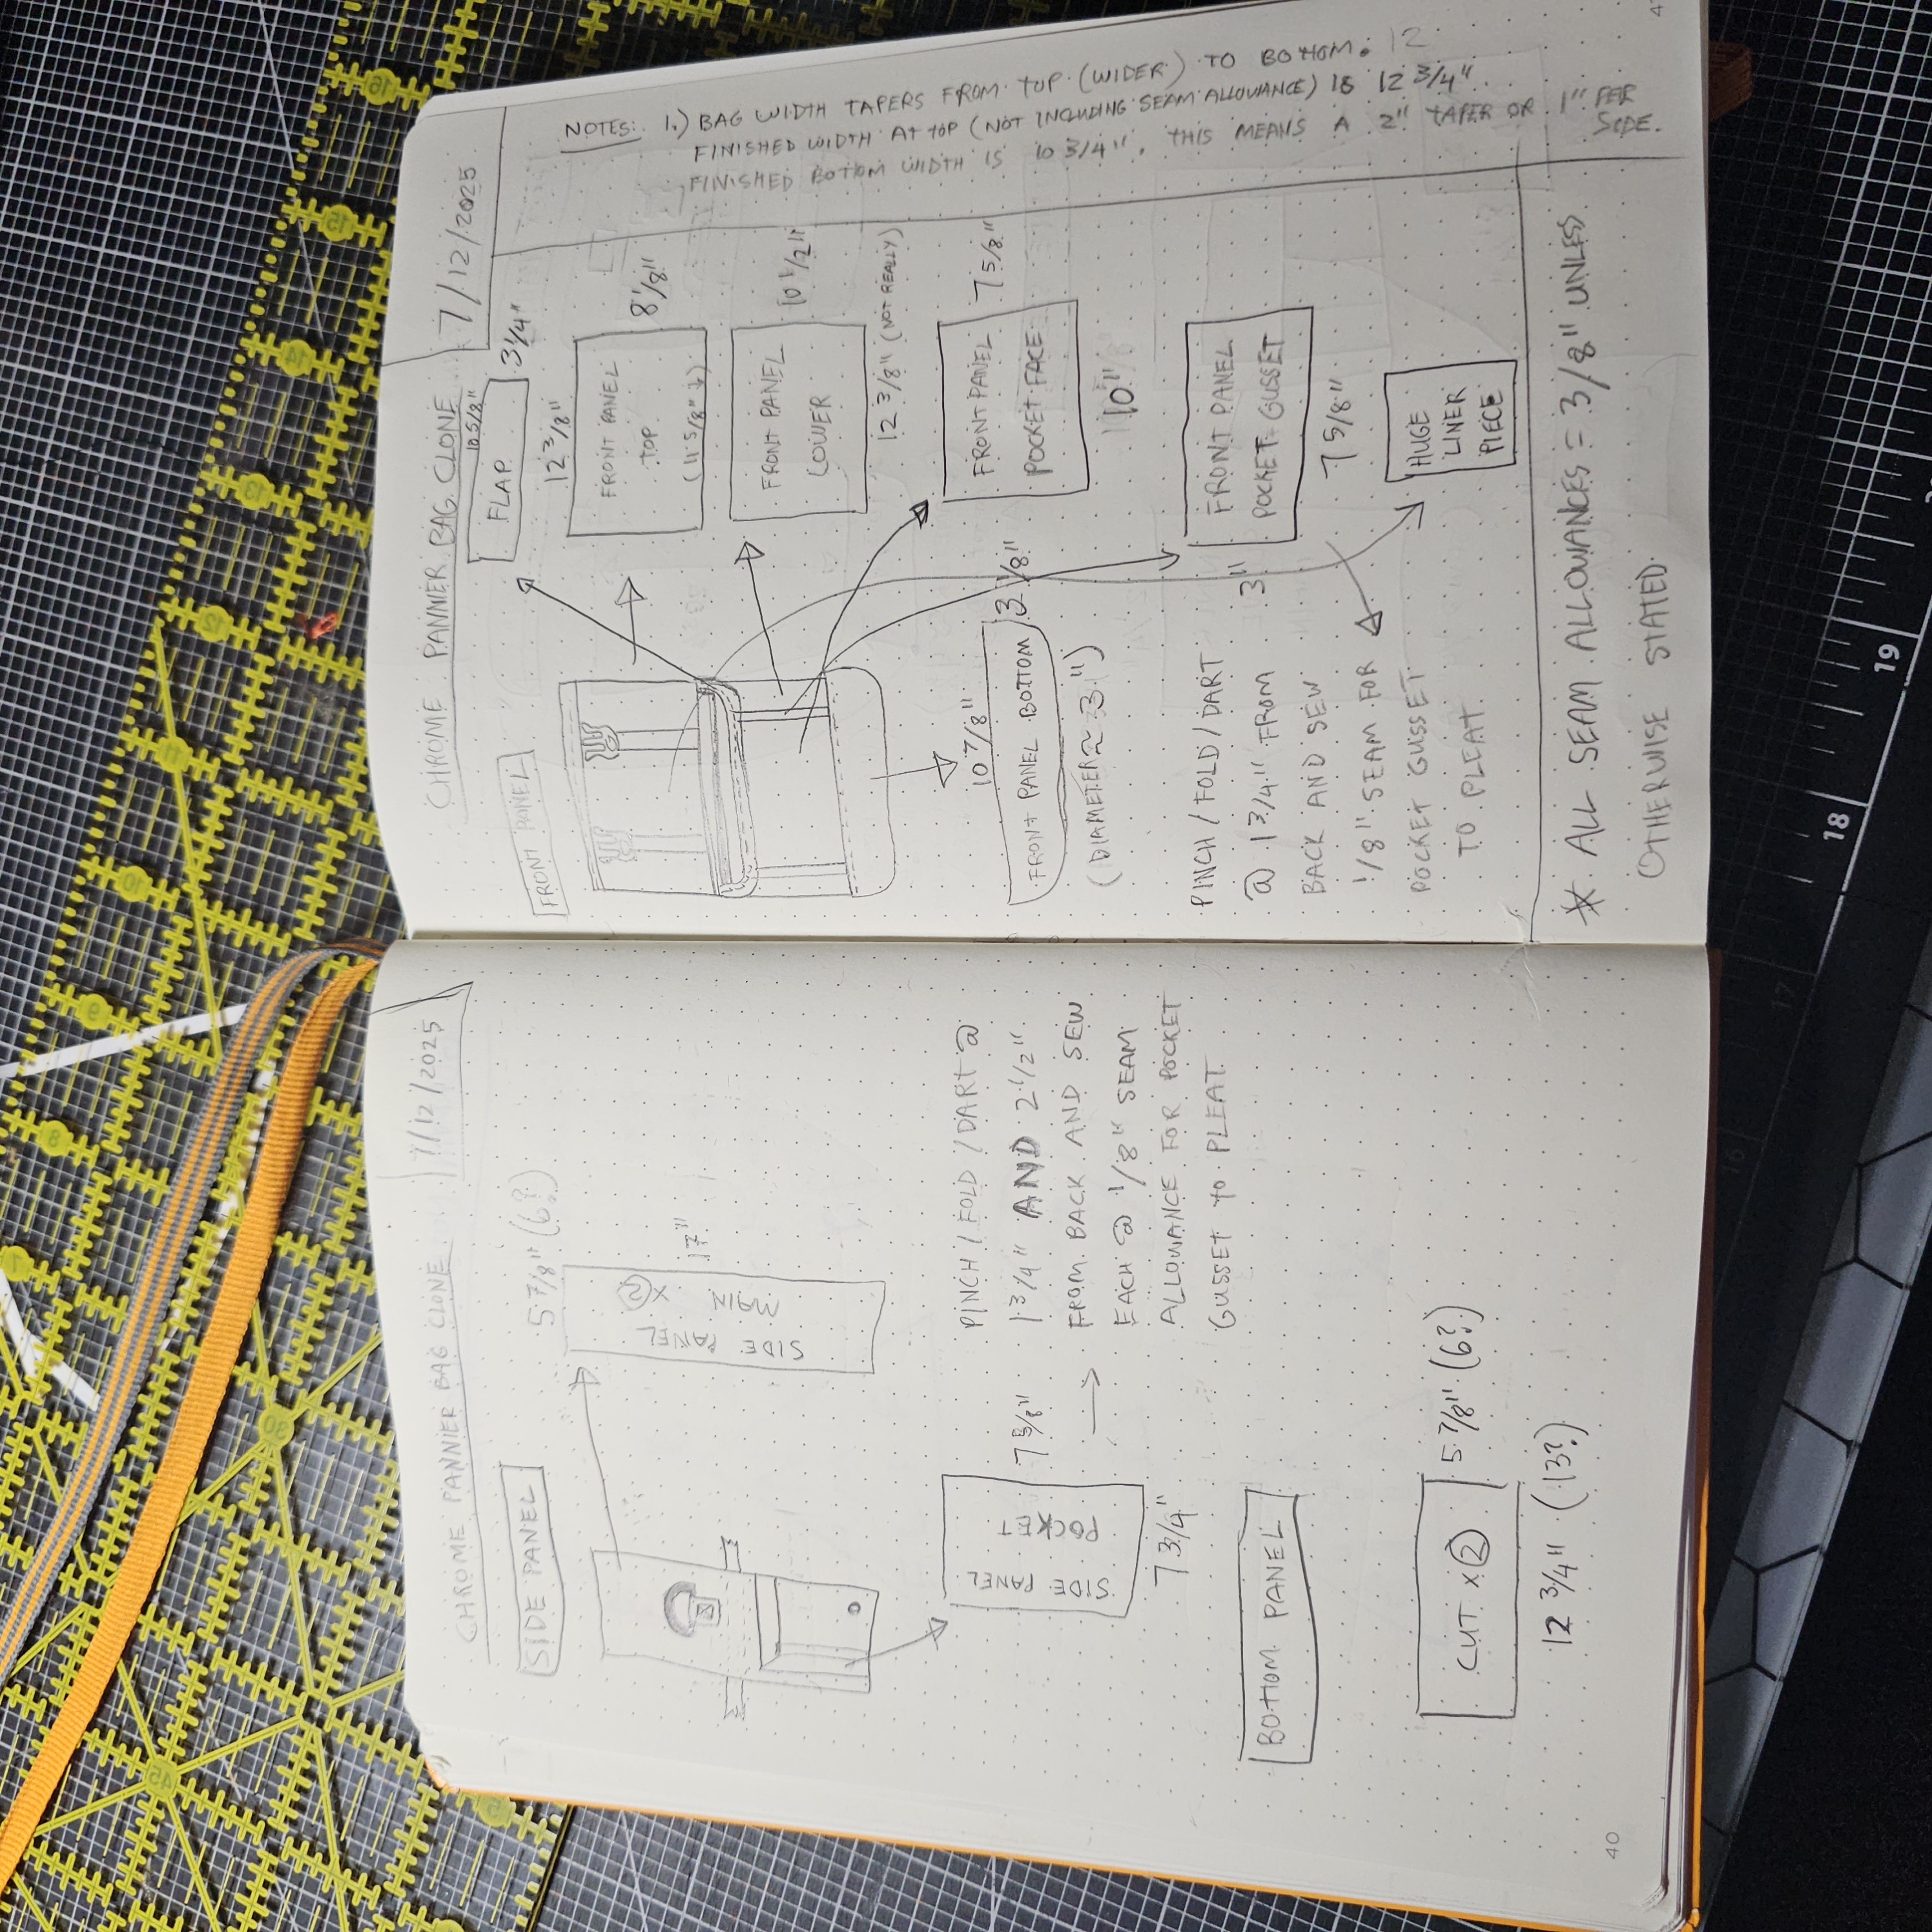 CHROME PANNIER BAG CLONE 7/12/2025
SIDE PANEL
5 7/8" (6?)
SIDE
PANEL
MAIN
x 2
17"
SIDE
PANEL
POCKET
7 5/8"
7 3/4"
PINCH / FOLD / DART @
1 3/4" AND 2 1/2"
FROM BACK AND SEW
EACH @ 1/8" SEAM
ALLOWANCE FOR POCKET
GUSSET TO PLEAT.
BOTTOM PANEL
CUT x 2
5 7/8" (6?)
12 3/4" (13?)
40
CHROME PANNIER BAG CLONE 7/12/2025
FRONT PANEL
FLAP
10 5/8"
3 1/4"
12 3/8"
FRONT PANEL
TOP
(11 5/8" ↓)
8 1/8"
FRONT PANEL
LOWER
10 1/2"
12 3/8" (NOT REALLY)
FRONT PANEL
POCKET FACE
7 5/8"
10"
10 7/8"
FRONT PANEL BOTTOM
3 1/8"
(DIAMETER ≈ 3")
FRONT PANEL
POCKET GUSSET
3"
7 5/8"
PINCH / FOLD / DART
@ 1 3/4" FROM
BACK AND SEW
1/8" SEAM FOR
POCKET GUSSET
TO PLEAT.
HUGE
LINER
PIECE
* ALL SEAM ALLOWANCES = 3/8" UNLESS
OTHERWISE STATED.
NOTES: 1.) BAG WIDTH TAPERS FROM TOP (WIDER) TO BOTTOM. 12
FINISHED WIDTH AT TOP (NOT INCLUDING SEAM ALLOWANCE) IS 12 3/4".
FINISHED BOTTOM WIDTH IS 10 3/4". THIS MEANS A 2" TAPER OR 1" PER
SIDE.
16
15
14
13
12
11
10
9
8
7
30
45
19
18
17
16